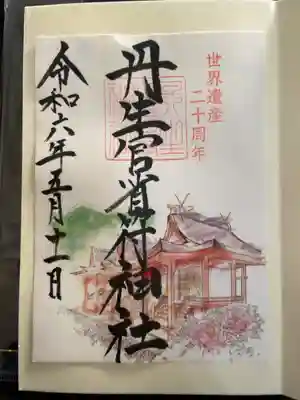 世界遺産
二十周年
丹生官省符神社
令和六年五月十一日